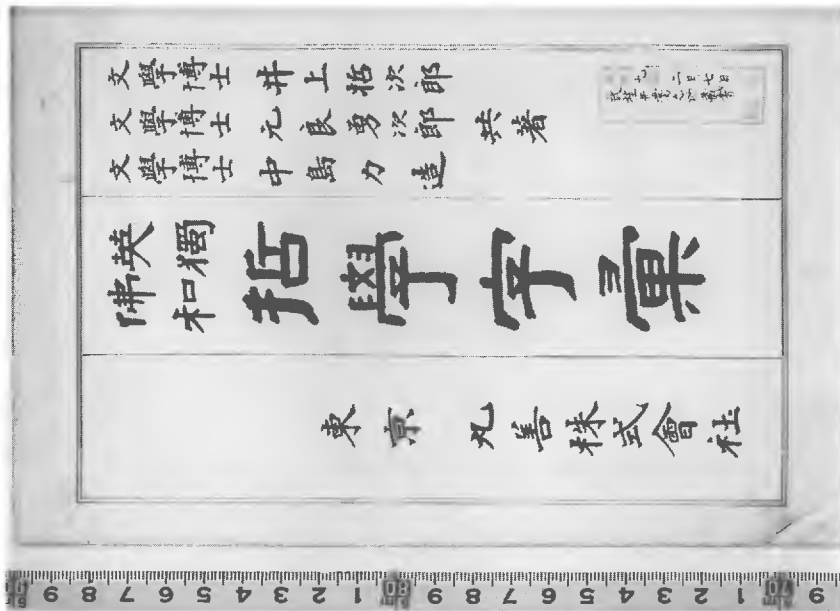 文學博士 井上哲次郎
文學博士 元良勇次郎 共著
文學博士 中島力造
英獨
佛和
哲學字彙
東京 丸善株式會社